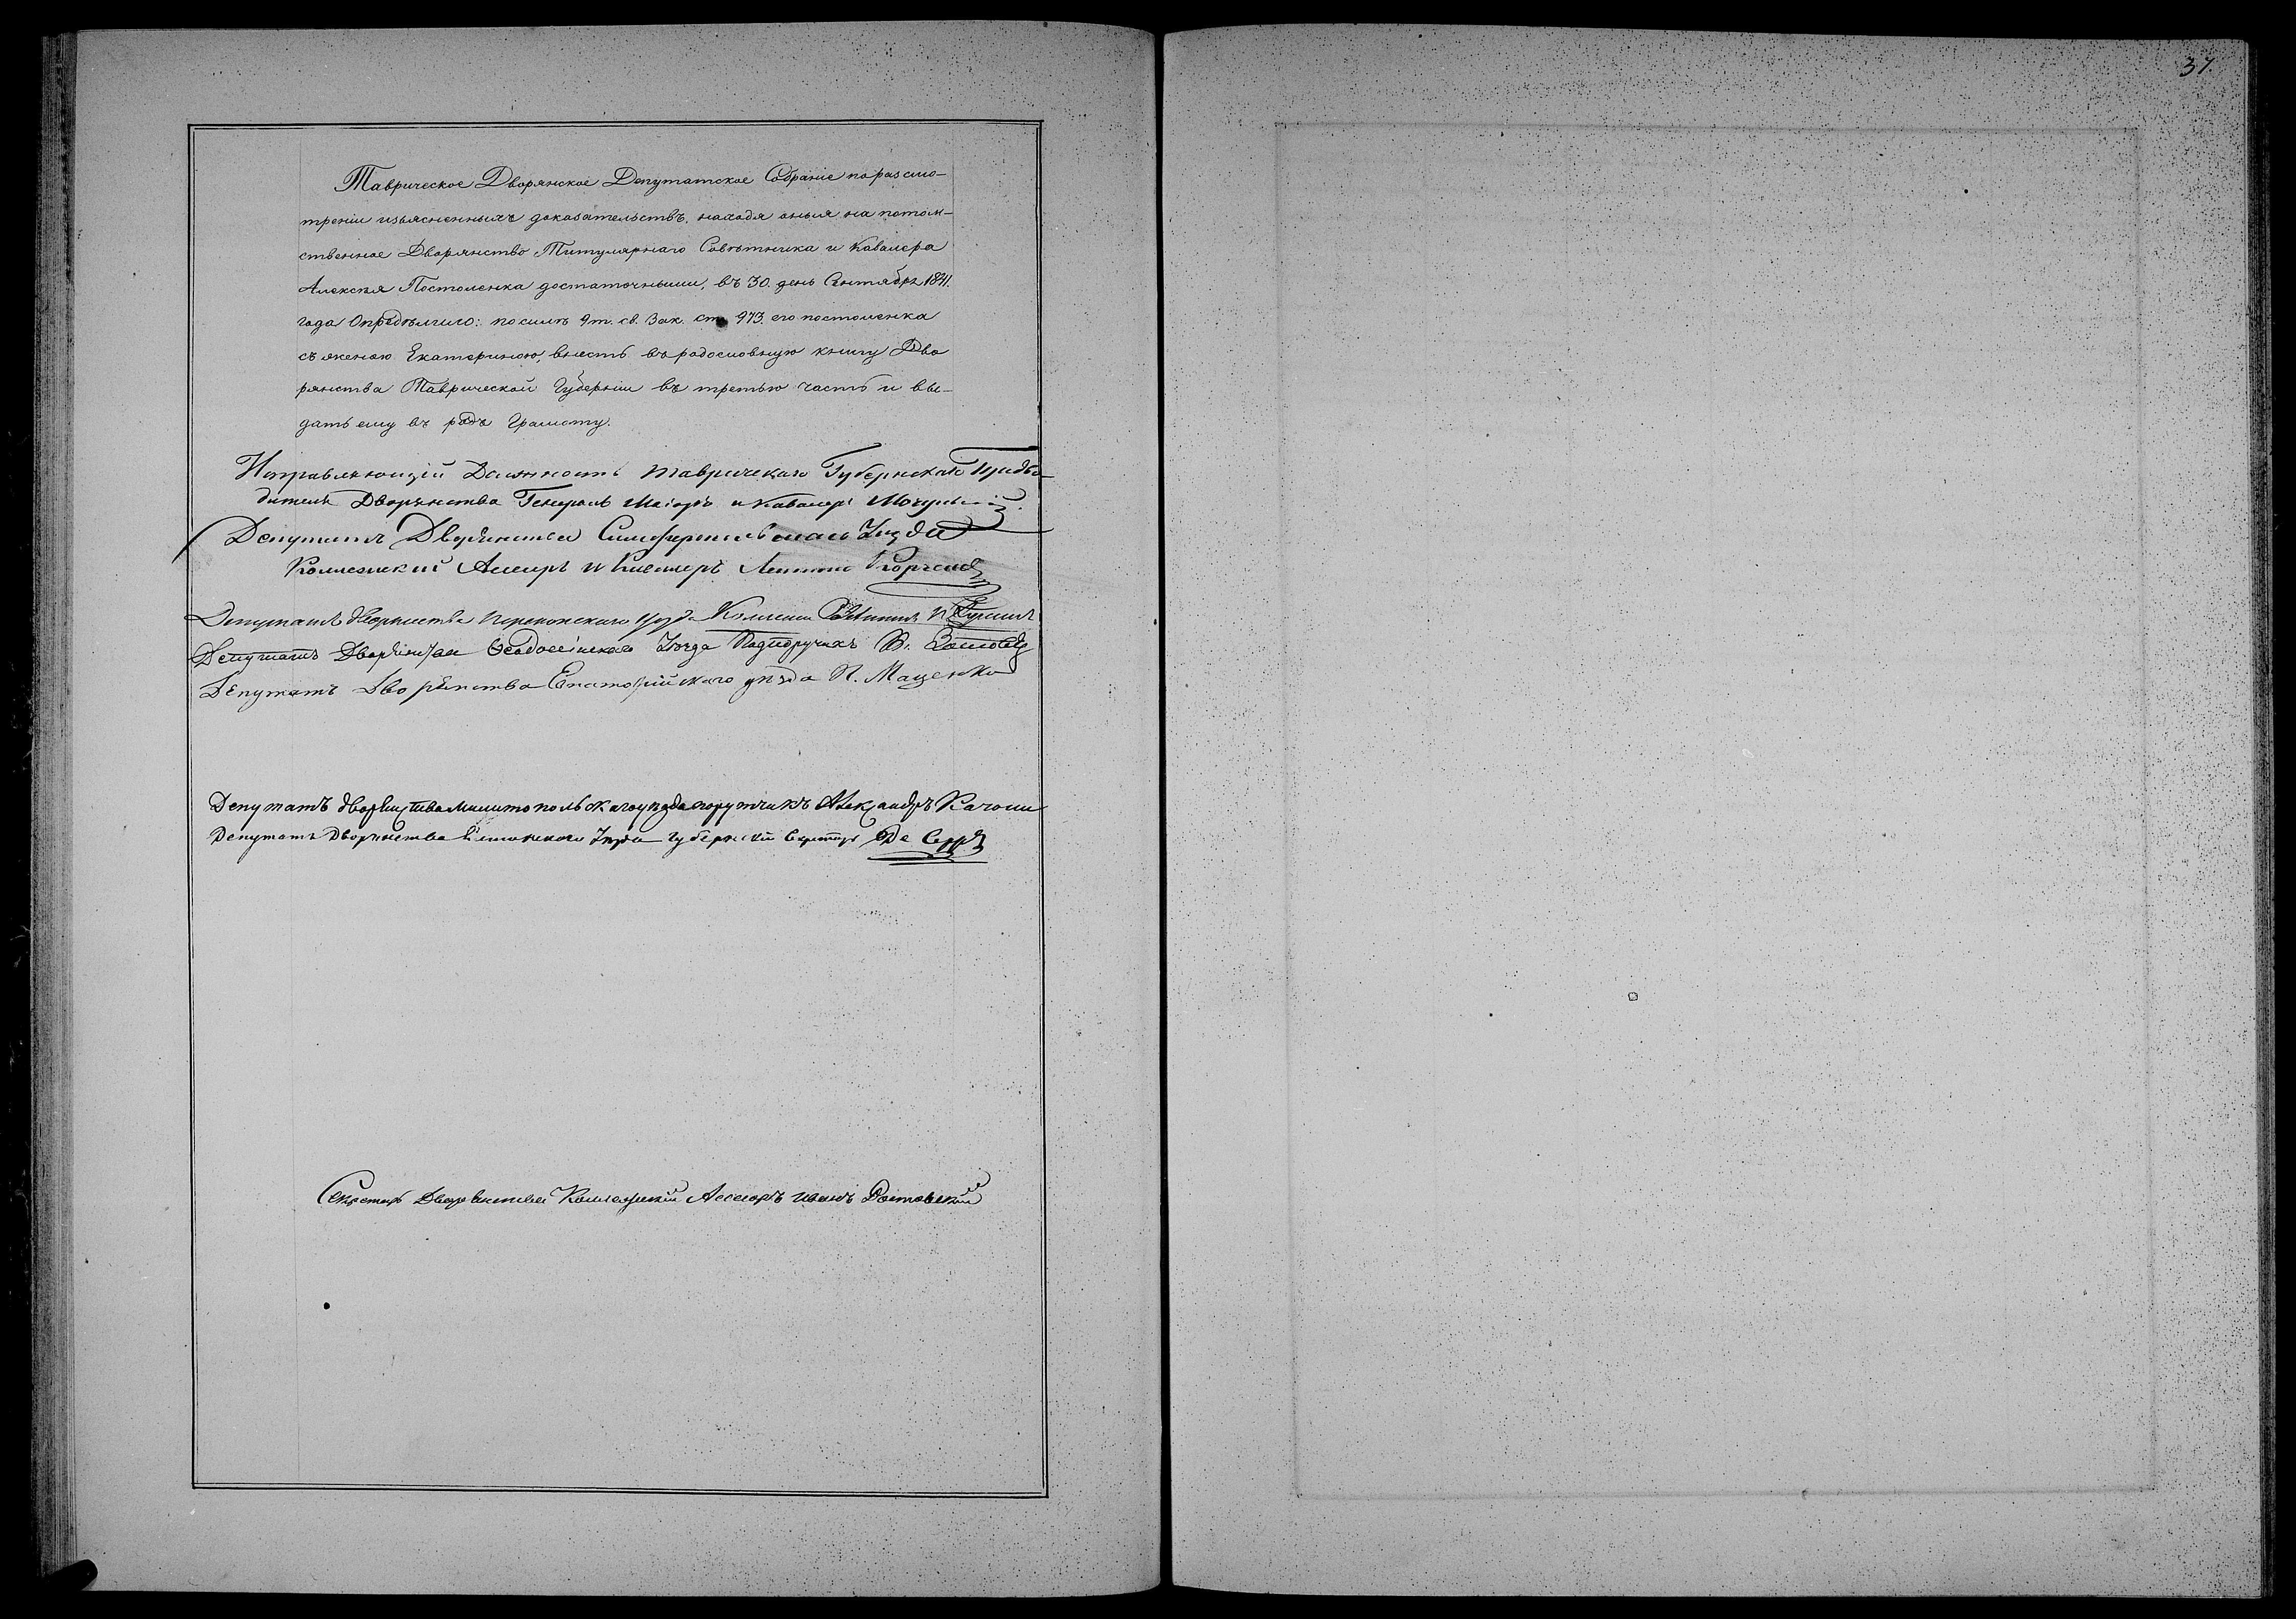 37
Таврическое Дворянское Депутатское Собраніе по разсмо-
треніи изъясненныхъ доказательствъ, находя оныя на потом-
ственное Дворянство Титулярнаго Совѣтника и Кавалера
Алексѣя Постоленка достаточными, въ 30. день Сентября 1841.
года Опредѣлило: по силѣ 9 т. св. Зак. ст. 973. его постоленка
съ женою Екатериною, внесть въ родословную книгу Дво
рянства Таврической Губерніи въ третью часть и вы-
дать ему въ родъ Грамоту.
Исправляющій Должность Таврическаго Губернскаго Предво-
дителя Дворянства Генералъ Маіоръ и Кавалеръ
Депутатъ Дворянства Симферопольскаго Уѣзда
Коллежскій Ассесоръ и Кавалеръ
Депутатъ Дворянства Перекопскаго уѣзда
Депутатъ Дворянства Ѳеодосійскаго Уѣзда Подпоручикъ
Депутатъ Дворянства Евпаторійскаго уѣзда П. Маценко
Депутатъ дворянства Мелитопольскаго уѣзда порутчикъ Александръ Качони
Депутатъ Дворянства Уѣзда Губернскій Секретарь Де Серръ
Секретарь Дворянства Коллежскій Ассесоръ Иванъ